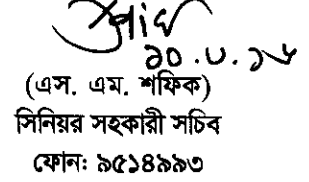 ২০.৮.১৮
(এস. এম. শফিক)
সিনিয়র সহকারী সচিব
ফোন: ৯৫১৪৯৯৩